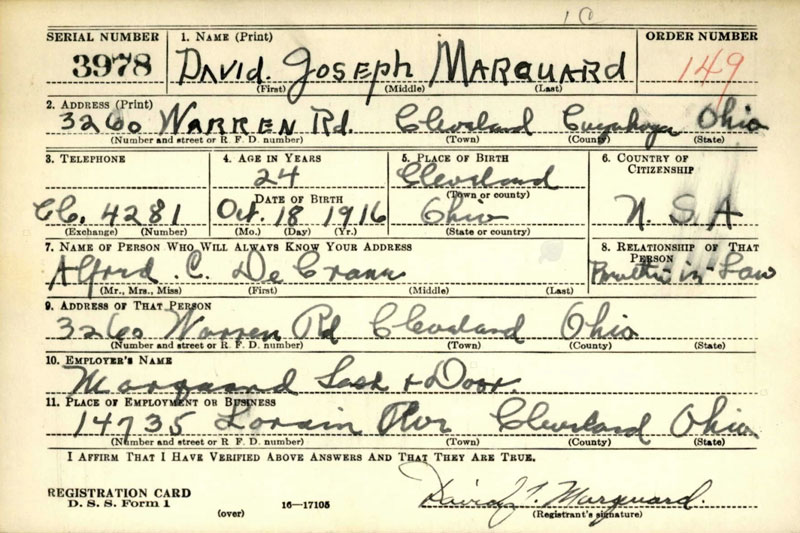 10
SERIAL NUMBER 1. NAME (Print) ORDER NUMBER
3978 DAVID. JOSEPH MARQUARD 149
(First) (Middle) (Last)
2. ADDRESS (Print)
3260 WARREN Rd. Cleveland Cuyahoga Ohio
(Number and street or R. F. D. number) (Town) (County) (State)
3. TELEPHONE 4. AGE IN YEARS 5. PLACE OF BIRTH 6. COUNTRY OF CITIZENSHIP
24 Cleveland
DATE OF BIRTH (Town or county)
Cl. 4281 Oct. 18 1916 Ohio U. S. A
(Exchange) (Number) (Mo.) (Day) (Yr.) (State or country)
7. NAME OF PERSON WHO WILL ALWAYS KNOW YOUR ADDRESS 8. RELATIONSHIP OF THAT PERSON
Alfred. C. De Crane Brother in Law
(Mr., Mrs., Miss) (First) (Middle) (Last)
9. ADDRESS OF THAT PERSON
3260 Warren Rd Cleveland Ohio
(Number and street or R. F. D. number) (Town) (County) (State)
10. EMPLOYER'S NAME
Marquard Sash + Door.
11. PLACE OF EMPLOYMENT OR BUSINESS
14735 Lorain Ave Cleveland Ohio
(Number and street or R. F. D. number) (Town) (County) (State)
I AFFIRM THAT I HAVE VERIFIED ABOVE ANSWERS AND THAT THEY ARE TRUE.
REGISTRATION CARD
D. S. S. Form 1 (over) 16—17105 David J. Marquard.
(Registrant's signature)